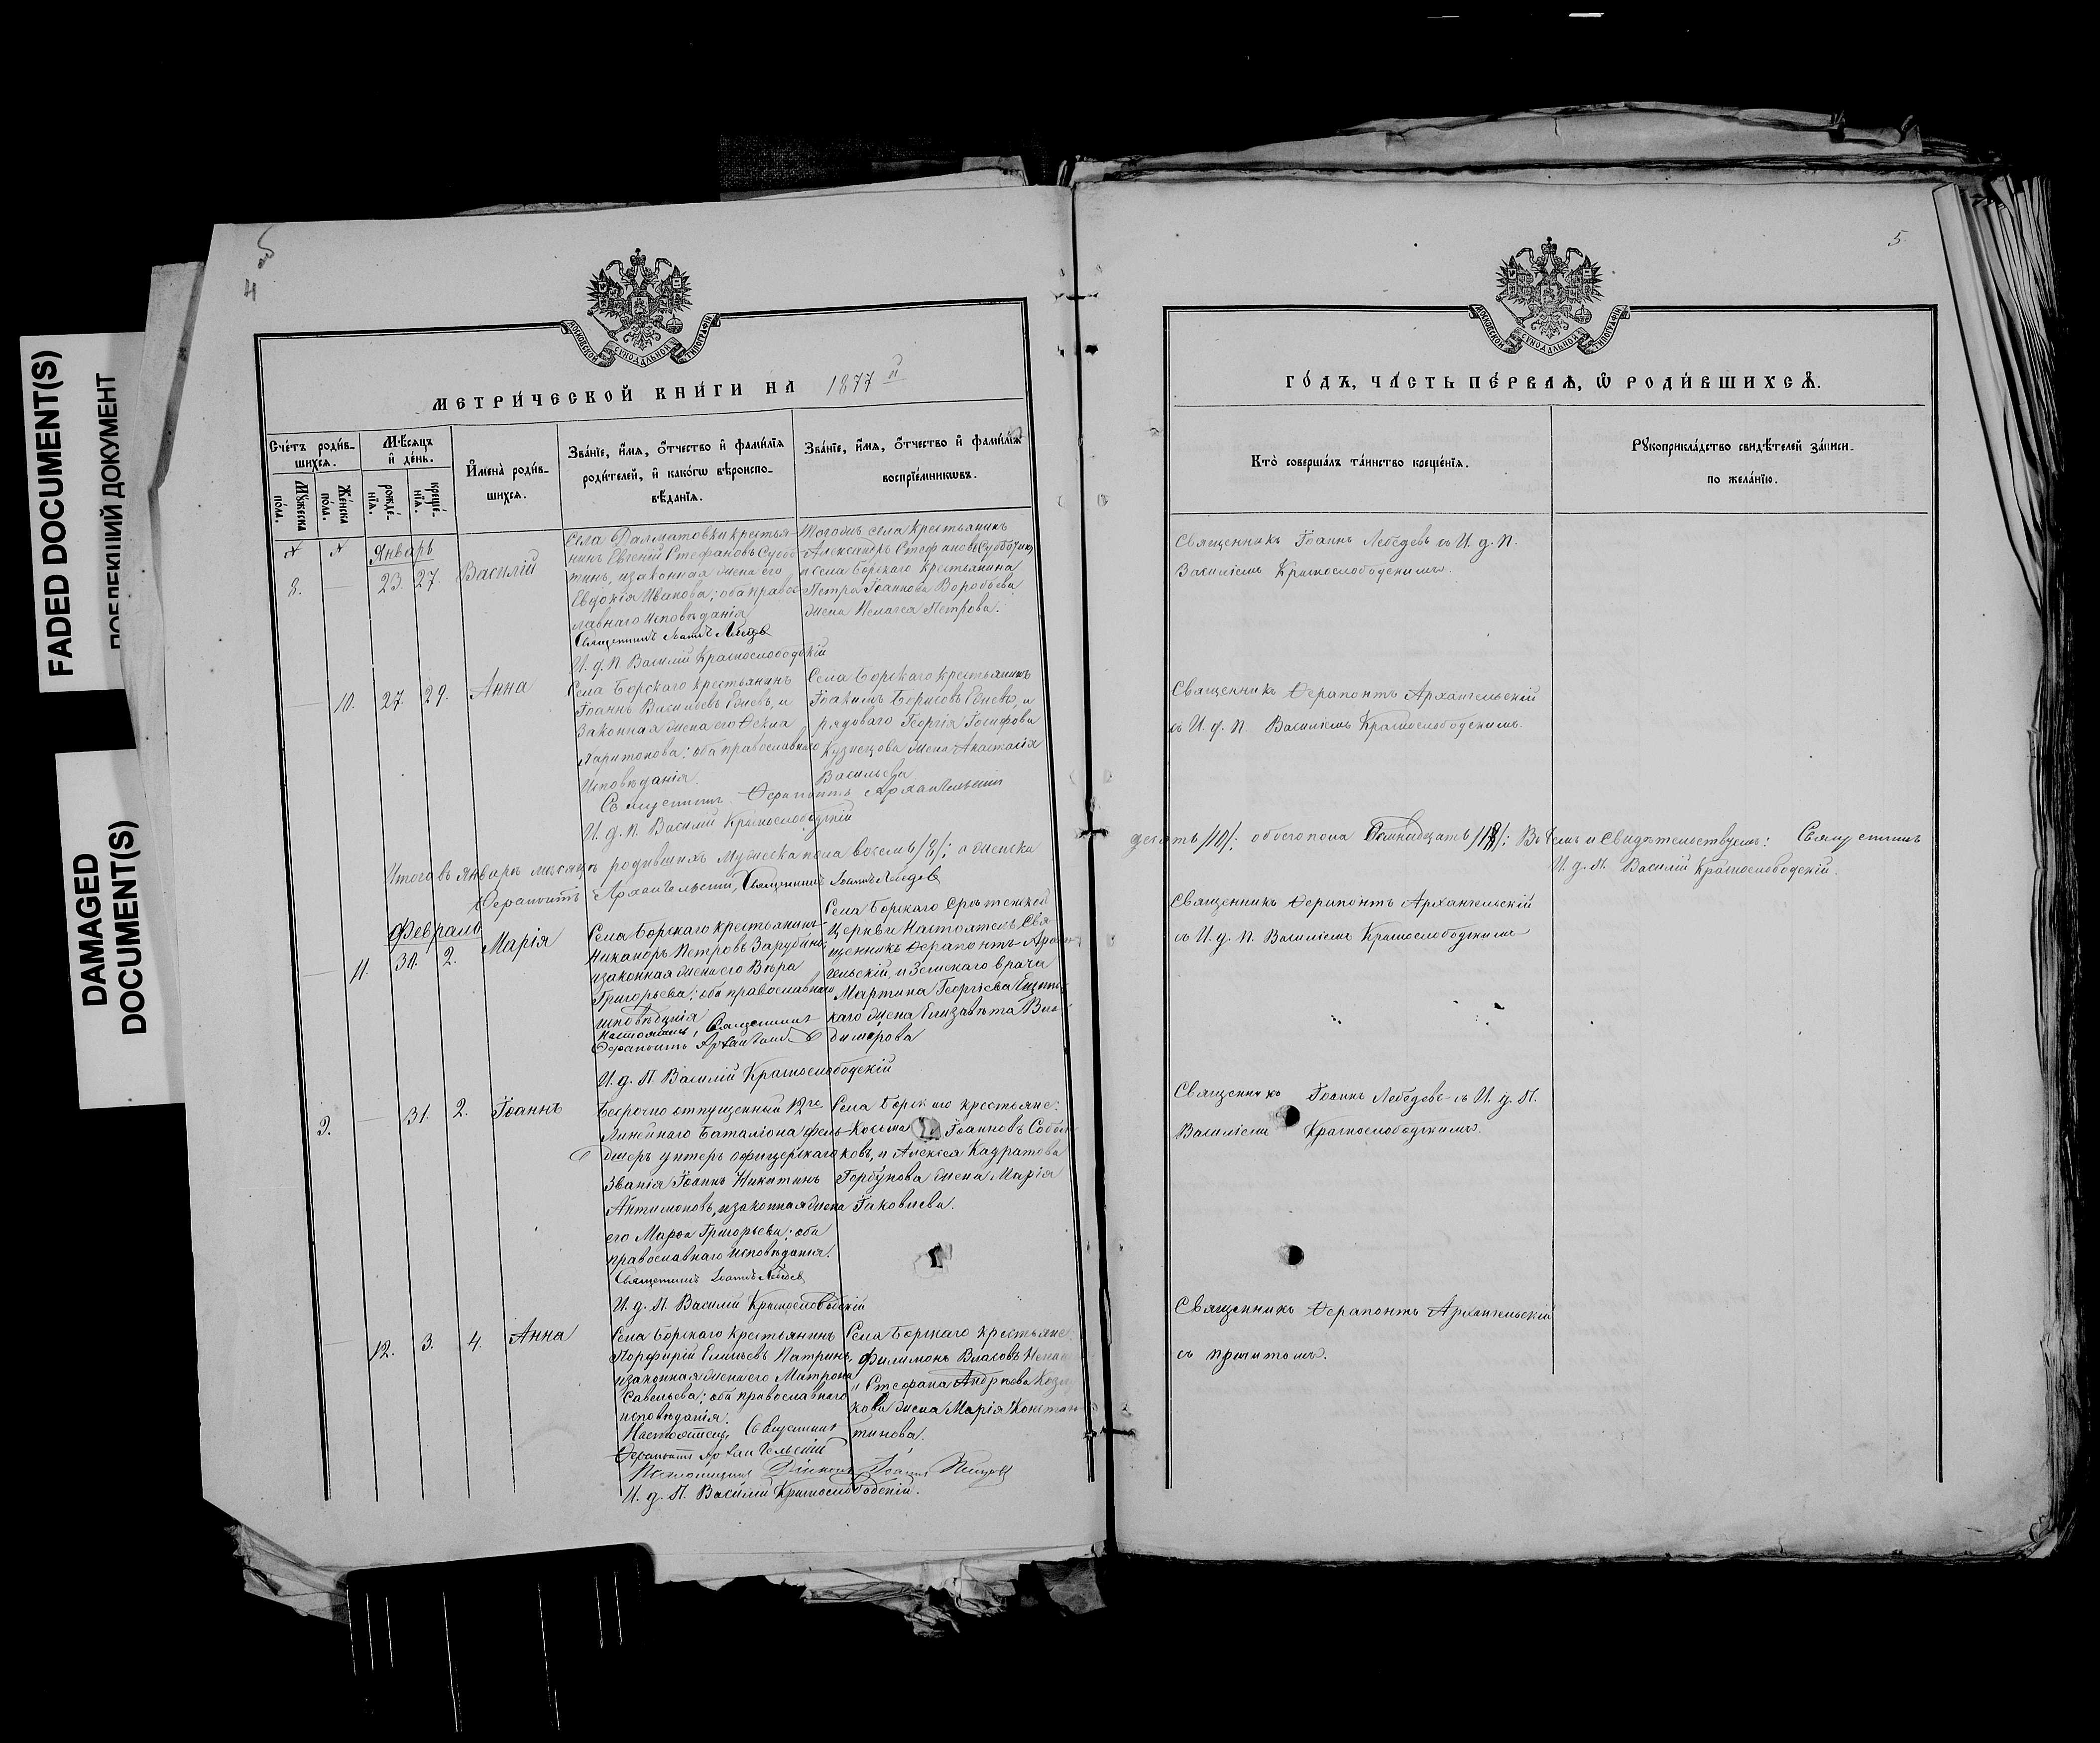 FADED DOCUMENT(S)
ПОБЛЕКШИЙ ДОКУМЕНТ
DAMAGED
DOCUMENT(S)
5
4
МОСКОВСКОЙ СѴНОДАЛЬНОЙ ТИПОГРАФІИ
МЕТРИ́ЧЕСКОЙ КНИ́ГИ НА 1877 й
Сче́тъ роди́в-
шихсѧ.
Мꙋ́жеска по́ла.
Же́нска по́ла.
Мѣ́сѧцъ и҆ де́нь.
рожде́-
нїѧ.
креще́-
нїѧ.
И҆мена̀ роди́в-
шихсѧ.
Зва́нїе, и҆́мѧ, ѻ҆́тчество и҆ фами́лїѧ
роди́телей, и҆ како́гѡ вѣроиспо-
вѣ́данїѧ.
Зва́нїе, и҆́мѧ, ѻ҆́тчество и҆ фами́лїѧ
воспрїе́мникѡвъ.
Январь
8. — 23. 27. Василій
Села Далматовки крестья-
нинъ Евгеній Стефановъ Суббо-
тинъ, и законная жена его
Евдокія Иванова; оба правос-
лавнаго исповѣданія
Священникъ Іоаннъ Лебедев
И. д. П. Василій Краснослободскій
Тогожъ села крестьянинъ
Александръ Стефановъ Субботинъ
и села Борскаго крестьянина
Петра Іоаннова Воробьева
жена Пелагея Петрова.
— 10. 27. 29. Анна
Села Борскаго крестьянинъ
Іоаннъ Васильевъ и
Законная жена его Ѳекла
Харитонова; оба православнаго
Исповѣданія.
Священникъ Ѳерапонтъ Архангельскій
И. д. П. Василій Краснослободскій
Села Борскаго крестьянинъ
Іоакимъ Борисовъ и
рядоваго Георгія Іосифова
Кузнецова жена Анастасія
Васильева
Итого въ Январѣ мѣсяцѣ родившихъ Мужеска пола восемь /8/; а женска
Ѳерапонтъ Архангельскій, Священникъ Іоаннъ Лебедев
Февраль
— 11. 30. 2. Марія
Села Борскаго крестьянинъ
Никаноръ Петровъ Зарубинъ
и законная жена его Вѣра
Григорьева; оба православнаго
исповѣданія
Настоятель, Священникъ
Ѳерапонтъ Архангельскій
И. д. П. Василій Краснослободскій
Села Борскаго Срѣтенской
Церкви Настоятель Свя-
щенникъ Ѳерапонтъ Архан-
гельскій, и Земскаго врача
Мартина Георгіева
каго жена Елизавета Вла-
димирова
9. — 31. 2. Іоаннъ
Безсрочно отпущенный 12го
Линейнаго Баталіона фель-
дшеръ унтеръ офицерскаго
званія Іоаннъ Никитинъ
Антимоновъ, и законная жена
его Марѳа Григорьева; оба
православнаго исповѣданія.
Священникъ Іоаннъ Лебедев
И. д. П. Василій Краснослободскій
Села Борскаго крестьяне:
Косьма Іоанновъ
ковъ, и Алексѣя Кадратова
Горбунова жена Марія
Іаковлева.
— 12. 3. 4. Анна
Села Борскаго крестьянинъ
Порфирій Елисѣевъ Патринъ,
и законная жена его Матрона
Савельева; оба православнаго
исповѣданія.
Настоятель, Священникъ
Ѳерапонтъ Архангельскій
Діаконъ Іоаннъ
И. д. П. Василій Краснослободскій.
Села Борскаго крестьяне:
Филимонъ Власовъ
и Стефана Андрѣева
кова жена Марія Констан-
тинова.
5.
МОСКОВСКОЙ СѴНОДАЛЬНОЙ ТИПОГРАФІИ
ГО́ДЪ, ЧА́СТЬ ПЕ́РВАѦ, Ѽ РОДИ́ВШИХСѦ.
Кто̀ соверша́лъ та́инство креще́нїѧ.
Рꙋкоприкла́дство свидѣ́телей за́писи
по жела́нїю.
Священникъ Іоаннъ Лебедевъ съ И. д. П.
Василіемъ Краснослободскимъ.
Священникъ Ѳерапонтъ Архангельскій
съ И. д. П. Василіемъ Краснослободскимъ.
десять /10/; обоего пола восемнадцать /18/; Въ чемъ и свидѣтельствуемъ: Священникъ
И. д. П. Василій Краснослободскій.
Священникъ Ѳерапонтъ Архангельскій
съ И. д. П. Василіемъ Краснослободскимъ
Священникъ Іоаннъ Лебедевъ съ И. д. П.
Василіемъ Краснослободскимъ.
Священникъ Ѳерапонтъ Архангельскій
съ причтомъ.